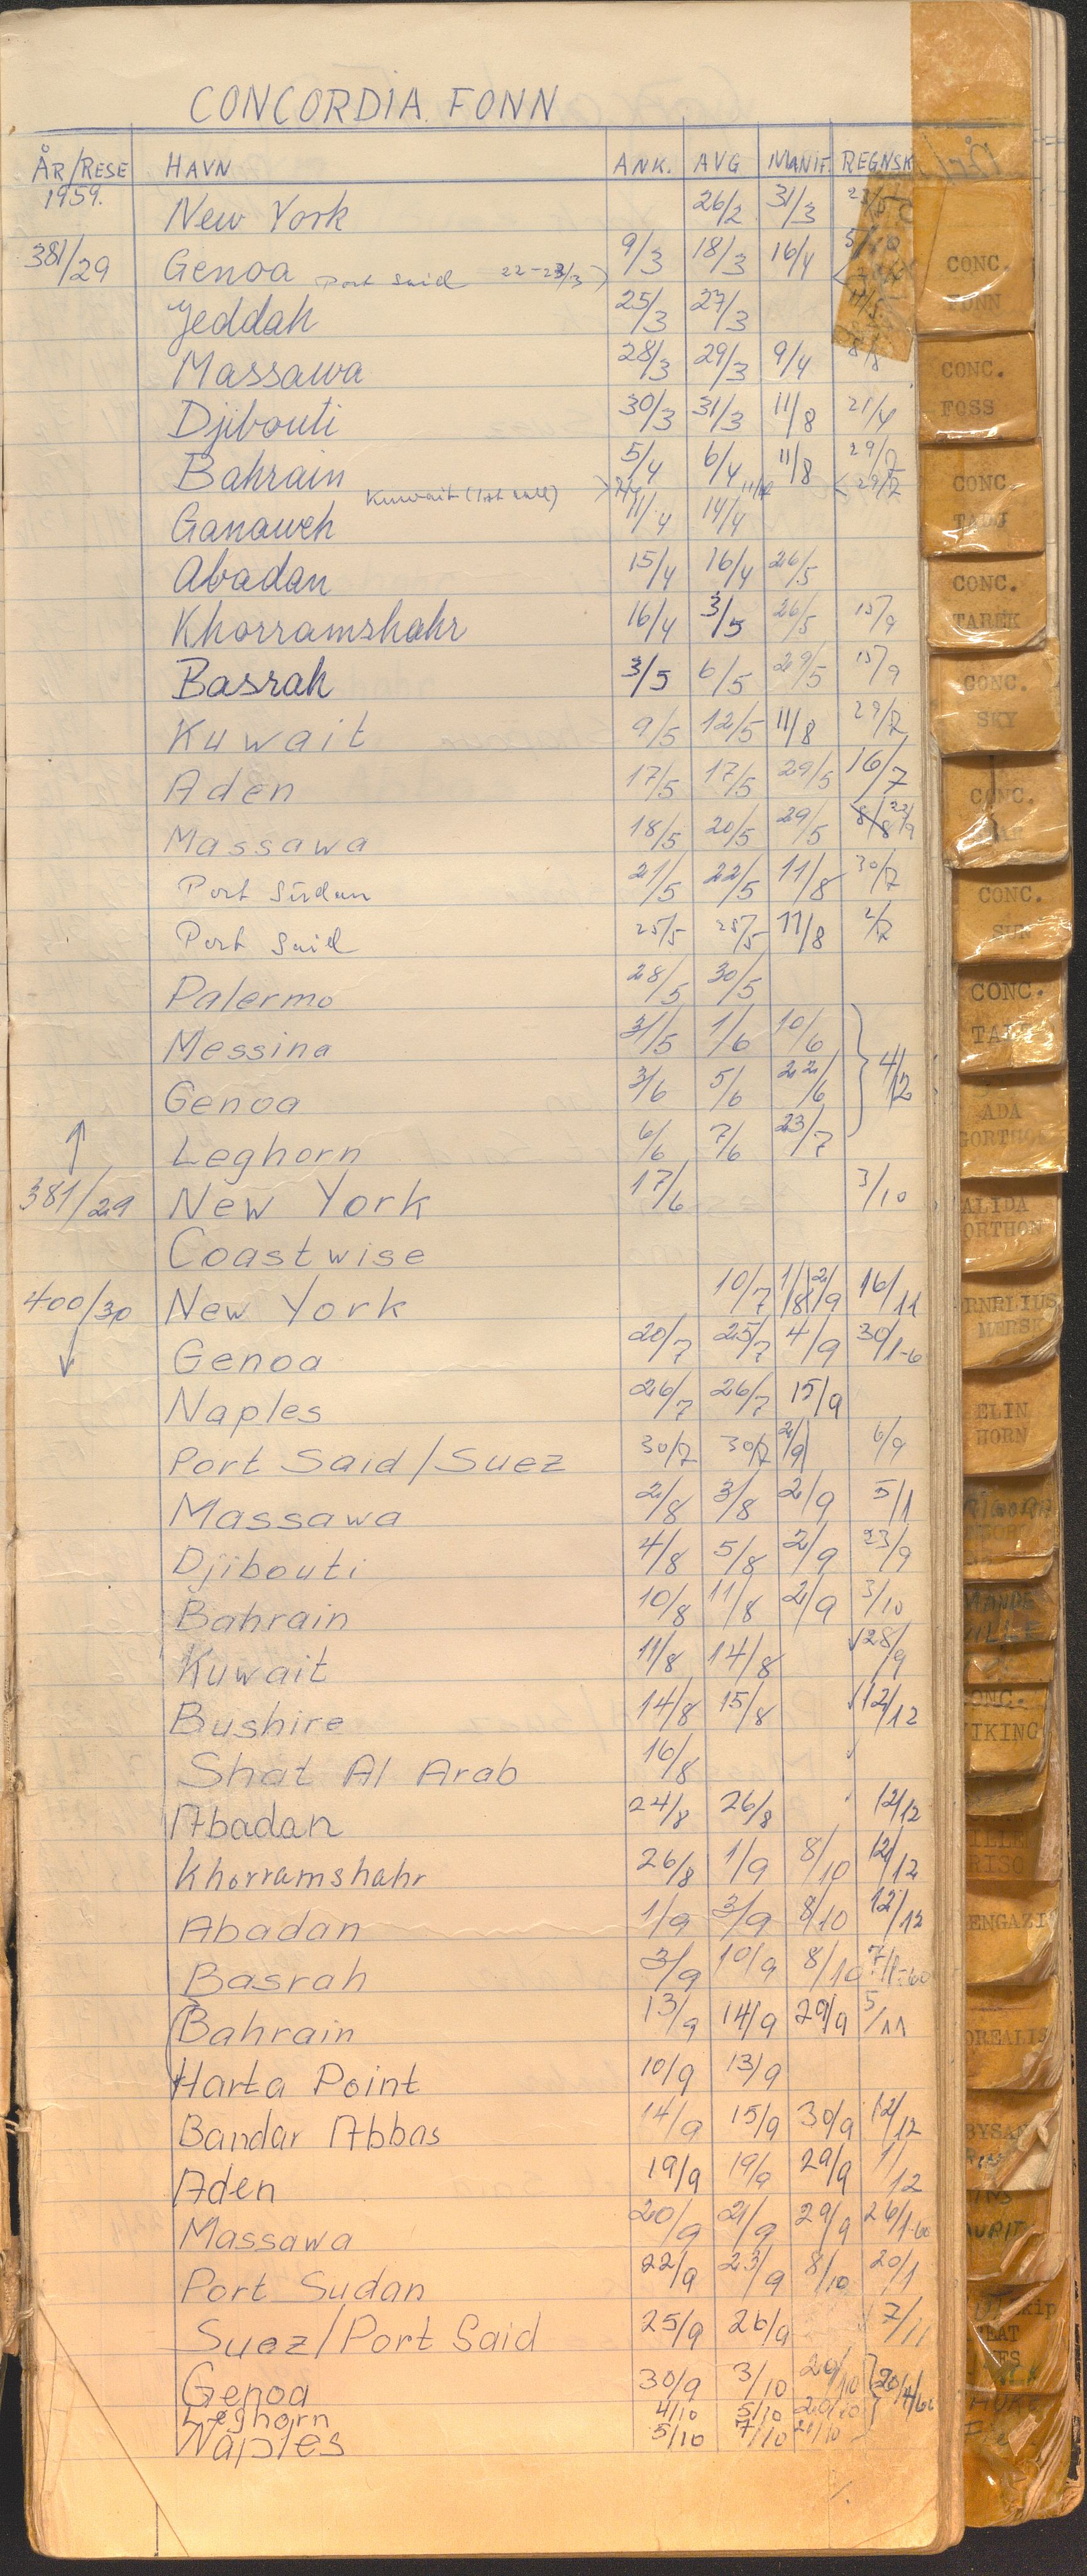 CONCORDIA FONN
ÅR/RESE HAVN ANK. AVG MANIF. REGNSK
1959.
New York 26/2 31/3
381/29 Genoa 9/3 18/3 16/4
Port Said 22-23/3
Jeddah 25/3 27/3
Massawa 28/3 29/3 9/4 8/8
Djibouti 30/3 31/3 11/8 21/4
Bahrain 5/4 6/4 11/8 29/7
Kuwait (1st call) 29/7
Ganaweh 11/4 14/4
Abadan 15/4 16/4 26/5
Khorramshahr 16/4 3/5 26/5 15/9
Basrah 3/5 6/5 29/5 15/9
Kuwait 9/5 12/5 11/8 29/7
Aden 17/5 17/5 29/5 16/7
Massawa 18/5 20/5 29/5 8/8 22/9
Port Sudan 21/5 22/5 11/8 30/7
Port Said 25/5 25/5 11/8 2/7
Palermo 28/5 30/5
Messina 31/5 1/6 10/6
Genoa 3/6 5/6 22/6 4/12
Leghorn 6/6 7/6 23/7
381/29 New York 17/6 3/10
Coastwise
400/30 New York 10/7 1/8 2/9 16/11
Genoa 20/7 25/7 4/9 30/1-6
Naples 26/7 26/7 15/9
Port Said/Suez 30/7 30/7 2/9 6/9
Massawa 2/8 3/8 2/9 5/1
Djibouti 4/8 5/8 2/9 23/9
Bahrain 10/8 11/8 2/9 3/10
Kuwait 11/8 14/8 28/9
Bushire 14/8 15/8 12/12
Shat Al Arab 16/8
Abadan 24/8 26/8 12/12
Khorramshahr 26/8 1/9 8/10 12/12
Abadan 1/9 3/9 8/10 12/12
Basrah 3/9 10/9 8/10 7/1-60
Bahrain 13/9 14/9 29/9 5/11
Harta Point 10/9 13/9
Bandar Abbas 14/9 15/9 30/9 12/12
Aden 19/9 19/9 29/9 1/12
Massawa 20/9 21/9 29/9 26/1-60
Port Sudan 22/9 23/9 8/10 20/1
Suez/Port Said 25/9 26/9 7/11
Genoa 30/9 3/10 20/10 20/4/60
Leghorn 4/10 5/10 20/10
Naples 5/10 7/10 21/10
CONC.
FONN
CONC.
FOSS
CONC.
TADJ
CONC.
TAREK
CONC.
SKY
CONC.
CONC.
SUN
CONC.
ADA
GORTHON
ALIDA
ORTHON
RNELIUS
MERSK
ELIN
HORN
ONC.
IKING
ENGAZI
OREALIS